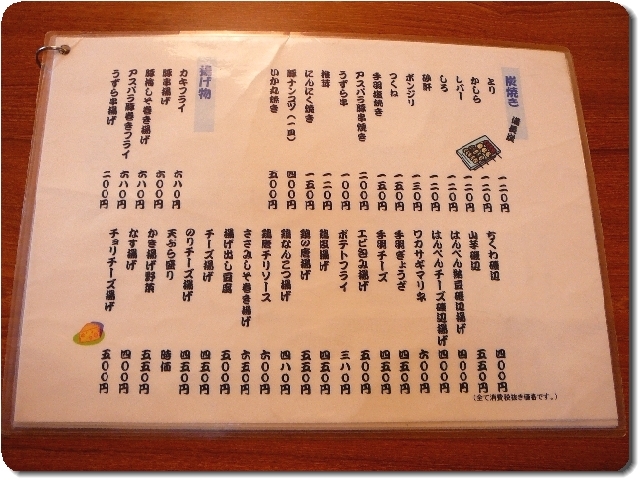 炭焼き 備長炭
とり 一二〇円
かしら 一二〇円
レバー 一二〇円
しろ 一二〇円
砂肝 一二〇円
ボンジリ 一三〇円
つくね 一五〇円
手羽塩焼き 一五〇円
アスパラ豚串焼き 二〇〇円
うずら串 一〇〇円
椎茸 一二〇円
にんにく焼き 一五〇円
豚ナンコツ(一皿) 四〇〇円
いか丸焼き 五〇〇円
揚げ物
カキフライ 六八〇円
豚串揚げ 六〇〇円
豚梅しそ巻き揚げ 六八〇円
アスパラ豚巻きフライ 六八〇円
うずら串揚げ 二〇〇円
ちくわ磯辺 四〇〇円
山芋磯辺 五五〇円
はんぺん納豆磯辺揚げ 四〇〇円
はんぺんチーズ磯辺揚げ 四〇〇円
ワカサギマリネ 六〇〇円
手羽ぎょうざ 四五〇円
手羽チーズ 四五〇円
エビ包み揚げ 五〇〇円
ポテトフライ 三八〇円
鶏皮揚げ 四五〇円
鶏の唐揚げ 五五〇円
鶏なんこつ揚げ 四八〇円
鶏唐チリソース 六〇〇円
ささみしそ巻き揚げ 六五〇円
揚げ出し豆腐 五〇〇円
チーズ揚げ 四五〇円
のりチーズ揚げ 五五〇円
天ぷら盛り 時価
かき揚げ野菜 五五〇円
なす揚げ 四〇〇円
チョリチーズ揚げ 五〇〇円
(全て消費税抜き価格です。)